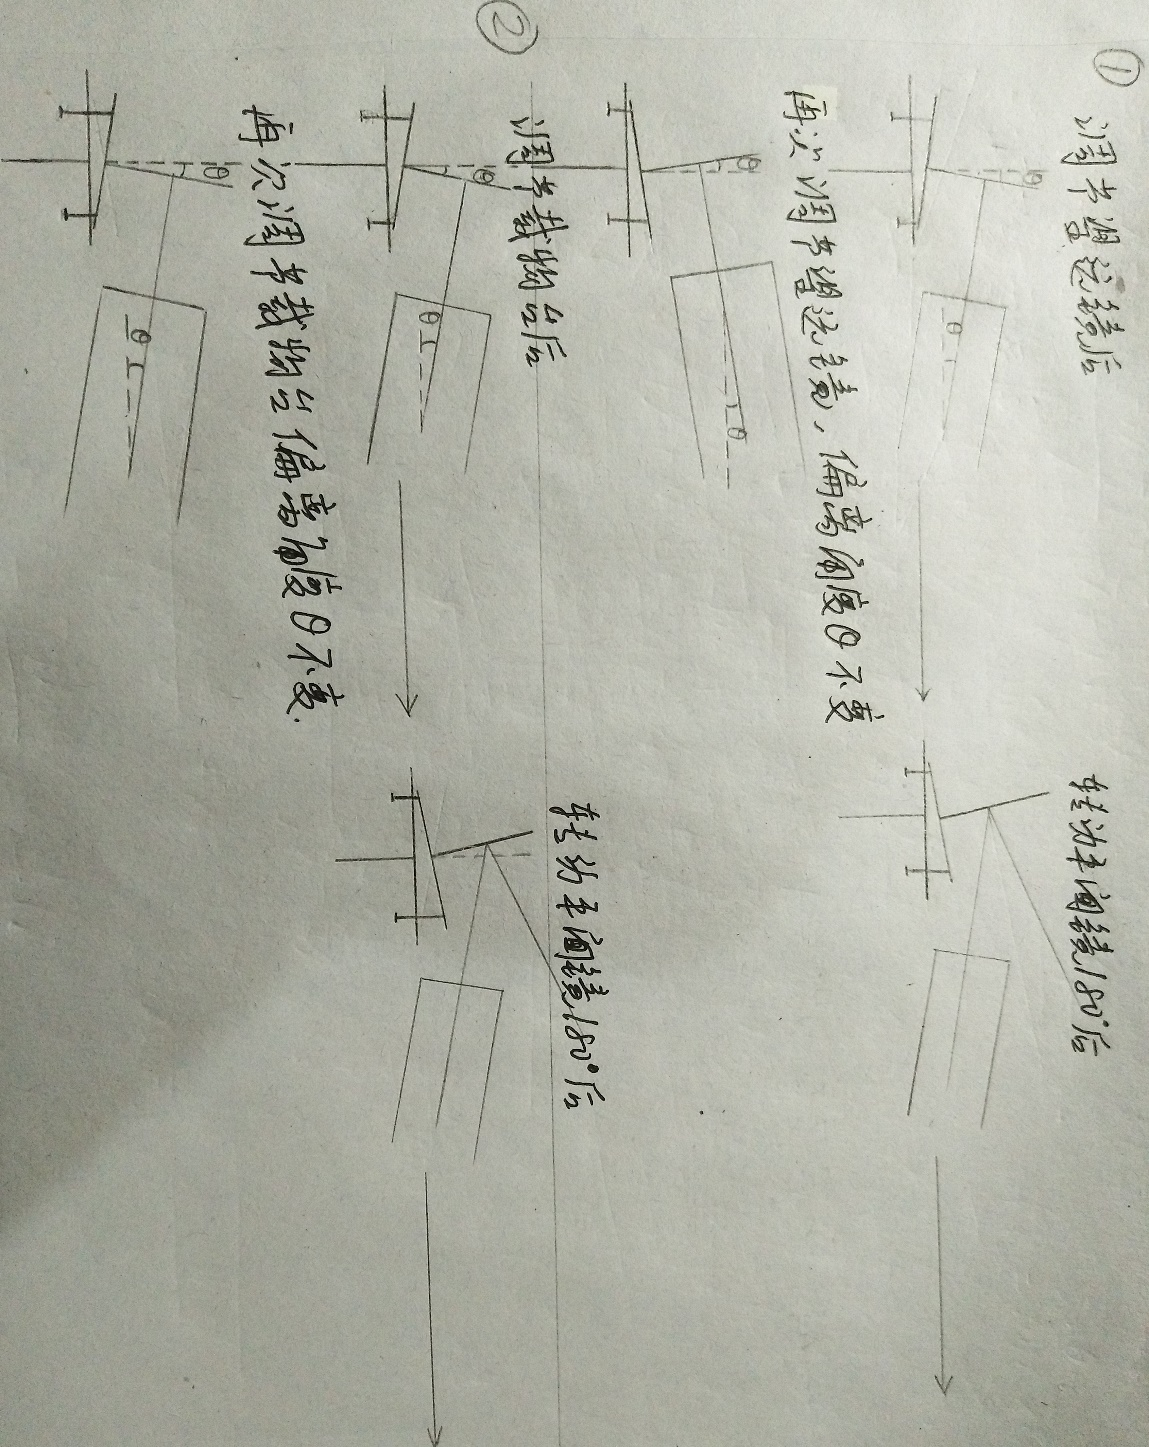 ①
调节望远镜后
θ
θ
转动平面镜180°后
再次调节望远镜，偏离角度θ不变
θ
θ
②
调节载物台后
θ
θ
转动平面镜180°后
再次调节载物台偏离角度θ不变.
θ
θ